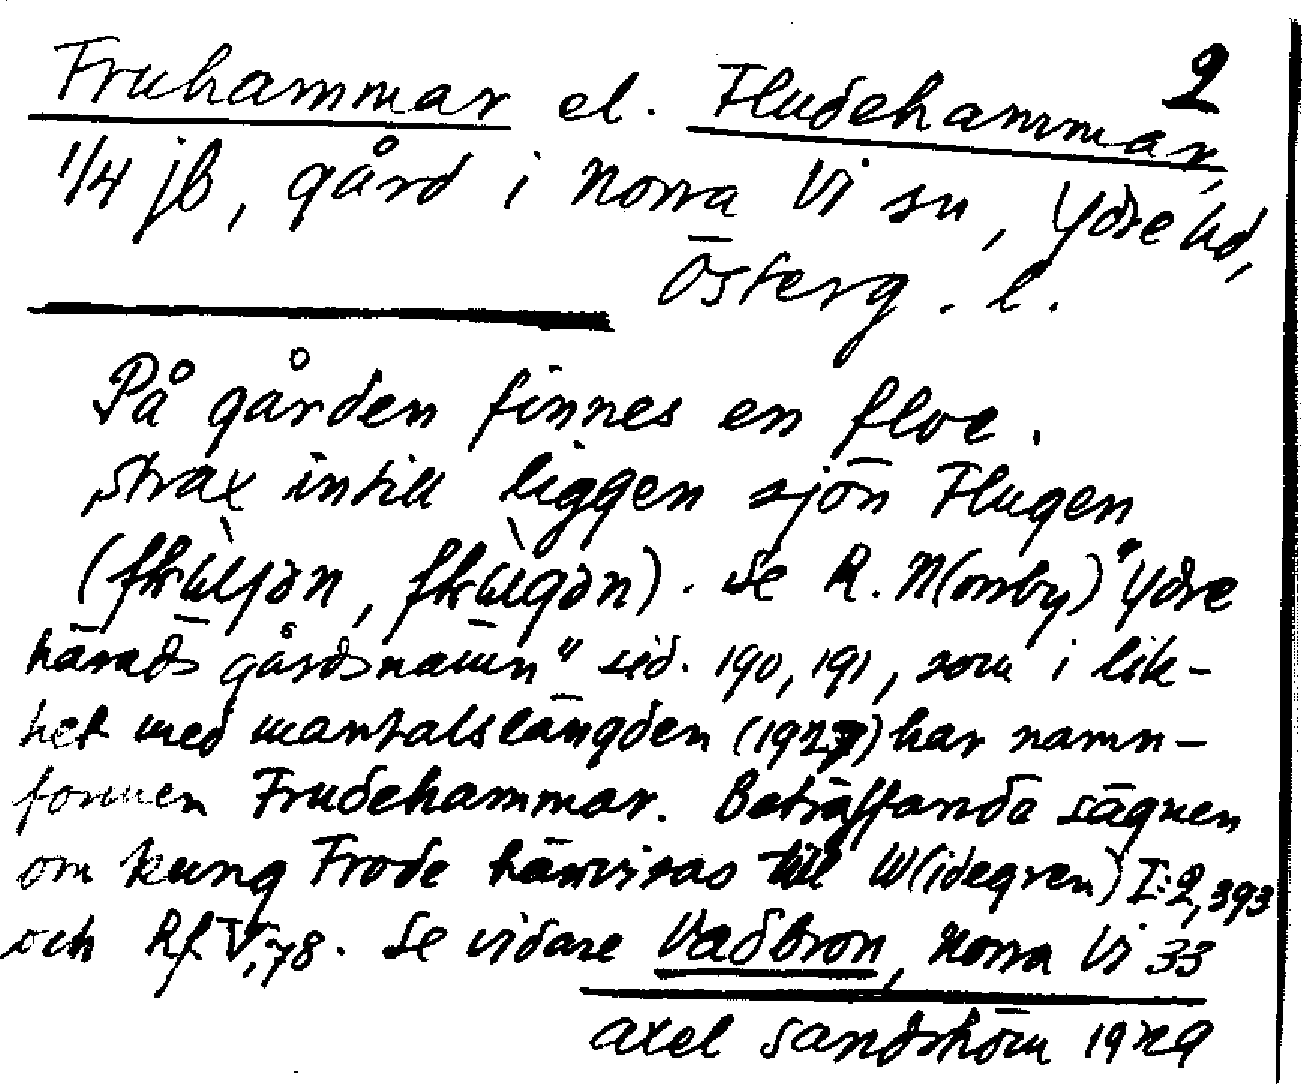 2
Fruhammar el. Fludehammar,
1/4 jb, gård i Norra Vi sn, Ydre hd,
Österg. l.
På gården finnes en floe.
Strax intill liggen sjön Flugen
(. Se R. N(orrby) "Ydre
härads gårdsnamn" sid. 190, 191, som i lik-
het med mantalslängden (1927) har namn-
formen Frudehammar. Beträffande sägnen
om kung Frode hänvisas till W(idegren) I:2, 393
och Rf V, 78. Se vidare Vadbron, Norra Vi 33
Axel Sandström 1929